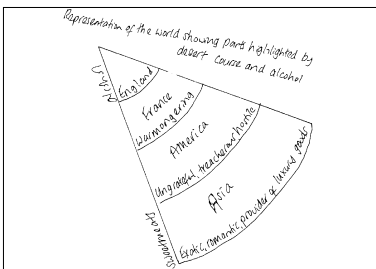 Representation of the world showing parts highlighted by
desert course and alcohol
England
France
Warmongering
America
Ungrateful, treacherous, hostile
Asia
Exotic, romantic, provider of luxury goods
Sweetmeats